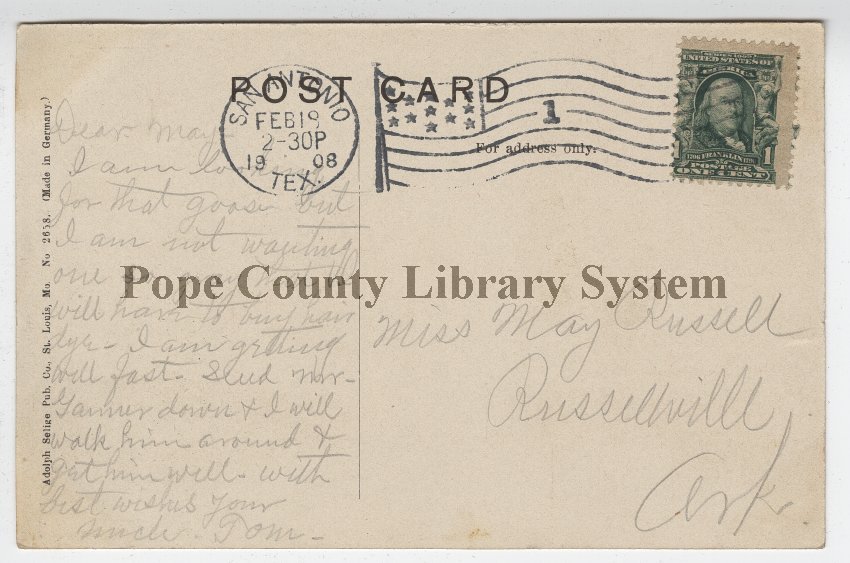 POST CARD
SAN ANTONIO
FEB 19
2-30P
19 08
TEX.
1
For address only.
SERIES 1902
UNITED STATES OF
AMERICA
1706 FRANKLIN 1790
POSTAGE
1 ONE CENT 1
Adolph Selige Pub. Co., St. Louis, Mo. No 2658. (Made in Germany.)
Dear May
I am
for that goose but
I am not wanting
one so
will have to buy hair
dye - I am getting
well fast - Send Mr -
Ganner down & I will
walk him around &
get him well - with
best wishes Your
Uncle - Tom -
Pope County Library System
Miss May Russell
Russellville
Ark.